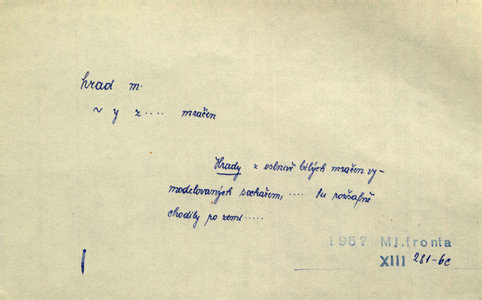 hrad m.
~ y z .... mračen
Hrady z oslnivě bílých mračen vy-
modelovaných sochařem, .... tu rozšafně
chodily po zemi .....
1957 Ml.fronta
XIII 281-6c